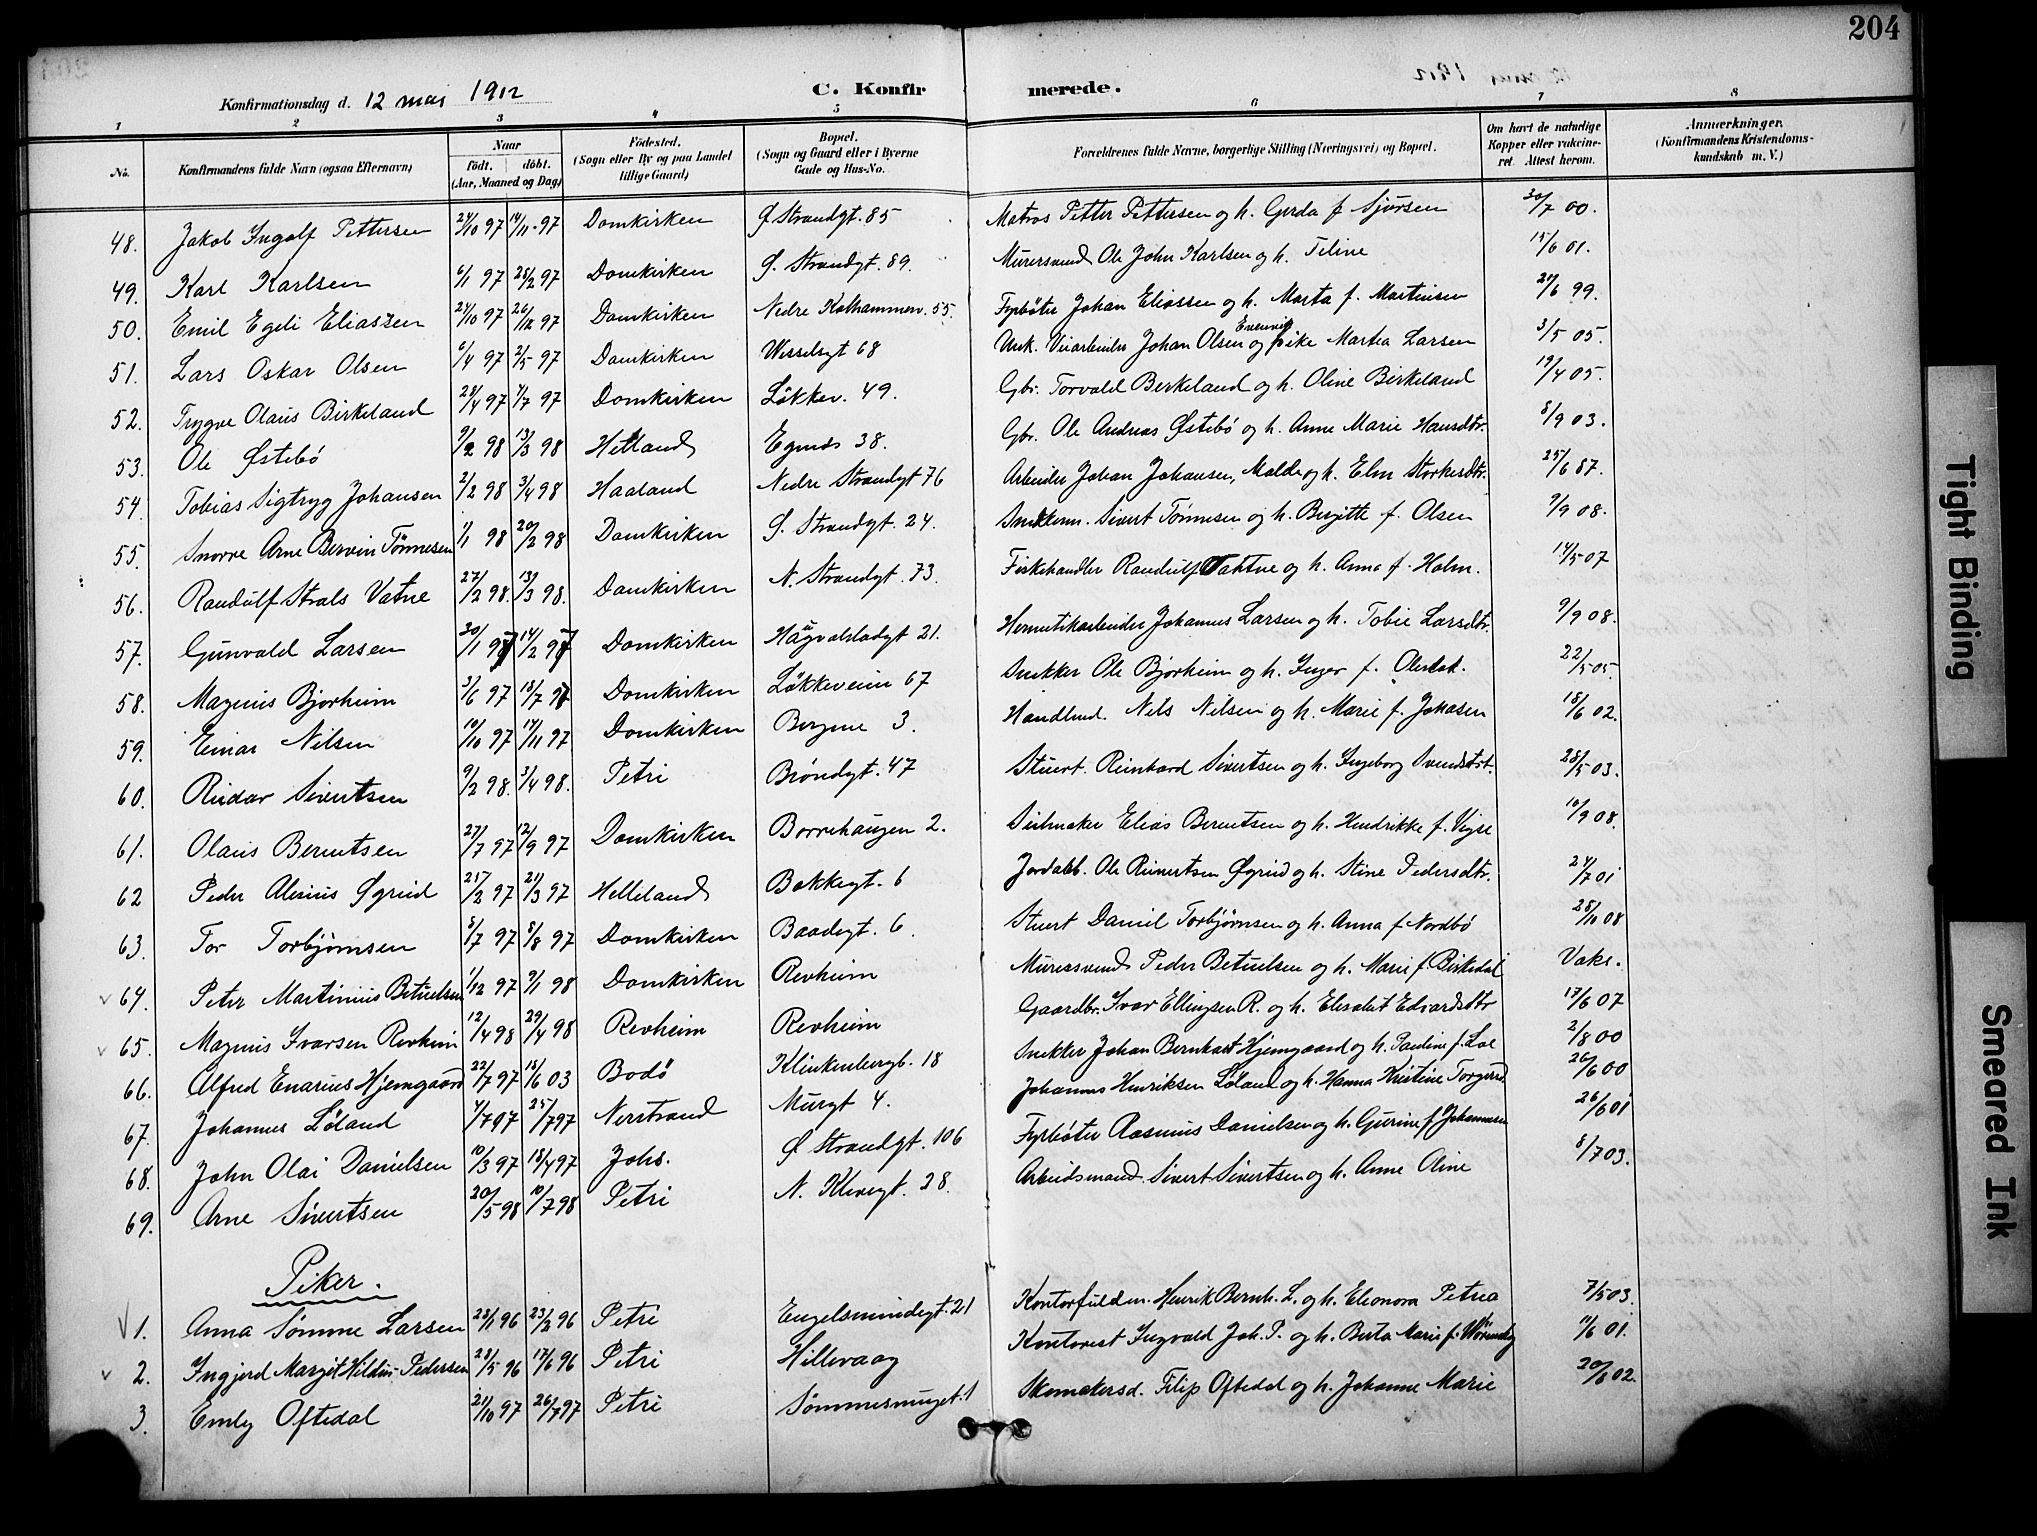 204
Konfirmationsdag d. 12 mai 1912 C. Konfirmerede.
1 2 3 4 5 6 7 8
No. Konfirmandens fulde Navn (ogsaa Efternavn) Naar födt. döbt. (Aar, Maaned og Dag) Födested. (Sogn eller By og paa Landet tillige Gaard) Bopæl. (Sogn og Gaard eller i Byerne Gade og Hus-No. Forældrenes fulde Navne, borgerlige Stilling (Næringsvei) og Bopæl. Om havt de naturlige Kopper eller vakcineret. Attest herom. Anmærkninger. (Konfirmandens Kristendomskundskab m. V.)
48. Jakob Ingolf Pettersen 24/10 97 14/11 97 Domkirken Ø Strandgt. 85 Matros Petter Pettersen og h. Gerda f Sjursen 30/7 00.
49. Karl Karlsen 6/1 97 28/2 97 Domkirken Ø. Strandgt. 89. Murersvend Ole John Karlsen og h. Teline 15/6 01.
50. Emil Egeli Eliassen 24/10 97 26/12 97 Domkirken Nedre Kolhammerv. 55. Fyrbøter Johan Eliassen og h. Marta f. Martinsen 21/6 99.
51. Lars Oskar Olsen 6/4 97 2/5 97 Domkirken Wesselsgt 68 Unk. Veiarbeider Johan Olsen og pike Martea Larsen 3/5 05.
52. Trygve Olaus Birkeland 28/4 97 4/7 97 Domkirken Løkkev. 49. Gbr. Torvald Berkeland og h. Oline Birkeland 19/4 05.
53. Ole Østebö 9/2 98 13/3 98 Hetland Egnds 38. Gbr. Ole Andreas Østebö og h. Anne Marie Hansdtr. 8/9 03.
54. Tobias Sigtryg Johansen 2/2 98 3/4 98 Haaland Nedre Strandgt 76 Arbeider Johan Johansen, Malde og h. Elen Storkersdtr. 25/6 87.
55. Snorre Arne Bervin Tönnesen 1/1 98 20/2 98 Domkirken Ø. Strandgt. 24. Snekkerm. Sivert Tönnesen og h. Bergitte f. Olsen 9/9 08.
56. Randulf Strals Vatne 27/2 98. 13/3 98. Domkirken N. Strandgt. 73. Fiskehandler Randulf Vahtne og h. Anna f. Holm. 14/5 07
57. Gunvald Larsen 30/1 97 14/2 97 Domkirken Haugvalstadgt 21. Hermetikarbeider Johannes Larsen og h. Tobie Larsdtr. 9/9 08.
58. Magnus Bjorheim 3/6 97 18/7 97 Domkirken Løkkeveien 67 Snekker Ole Bjorheim og h. Inger f. 22/5 05.
59. Einar Nilsen 10/10 97 14/11 97 Domkirken Bergene 3. Handlend. Nels Nilsen og h. Marie f. Johasen 18/6 02.
60. Reidar Sivertsen 9/2 98. 3/4 98. Petri Bröndgt. 47 Stuert. Reinhard Sivertsen og h. Ingeborg Svendsdtr. 28/5 03.
61. Olaus Berentsen 27/7 97 12/9 97 Domkirken Borrehaugen 2. Seilmaker Elias Berentsen og h. Hendrikke f. Vigre 10/9 08.
62 Peder Alerius Øgreid 25/2 97 21/3 97 Helleland Bakkegt. 6 Jordarb. Ole Reinertsen Øgreid og h. Stine Pedersdtr. 24/7 01
63. Tor Torbjörnsen 8/7 97 8/8 97 Domkirken Baadegt. 6. Stuert Daniel Torbjörnsen og h. Anna f Nordbö 28/11 08
v 64. Peter Martinius Betuelsen 1/12 97 9/1 98 Domkirken Revheim Murersvend Peder Betuelsen og h. Marie f. Birkedal Vakc.
v 65. Magnus Ivarsen Revheim 12/4 98 29/4 98 Revheim Revheim Gaardbr. Ivar Ellingsen R. og h. Elisabet Edvardsdtr 17/6 07
66. Alfred Enarius Hjemgaard 22/7 97 18/6 03 Bodö Klinkenbergb. 18 Snekker Johan Bernhart Hjemgaard og h. Pauline f. Loe 2/8 00
67. Johannes Löland 4/7 97 25/7 97 Nerstrand Murgt 4. Johannes Henriksen Löland og h. Hanna Kristine Torgersd. 26/6 00
68. John Olai Danielsen 10/3 97 18/4 97 Johs. Ø Strandgt. 106 Fyrbøter Rasmus Danielsen og h. Gurine f Johannesen 26/6 01
69. Arne Sivertsen 20/5 98 10/7 98 Petri N. Klevegt. 28. Arbeidsmand. Sivert Sivertsen og h. Anne Oline 8/7 03.
Piker.
v 1. Anna Sömme Larsen 28/1 96 23/2 96 Petri Engelsmindegt. 21 Kontorfuldm. Henrik Bernh. L. og h. Elenora Petrea 7/5 03.
v 2. Ingjerd Margit Heldine Pedersen 28/5 96 17/6 96 Petri Hillevaag Kontorest Ingvald Joh. P. og h. Berta Marie f. 11/6 01.
3. Emly Oftedal 21/10 97 26/7 97 Petri Sömmesmuget. 1 Skomakersd. Filip Oftedal og h. Johanne Marie 20/8 02.
Tight Binding
Smeared Ink